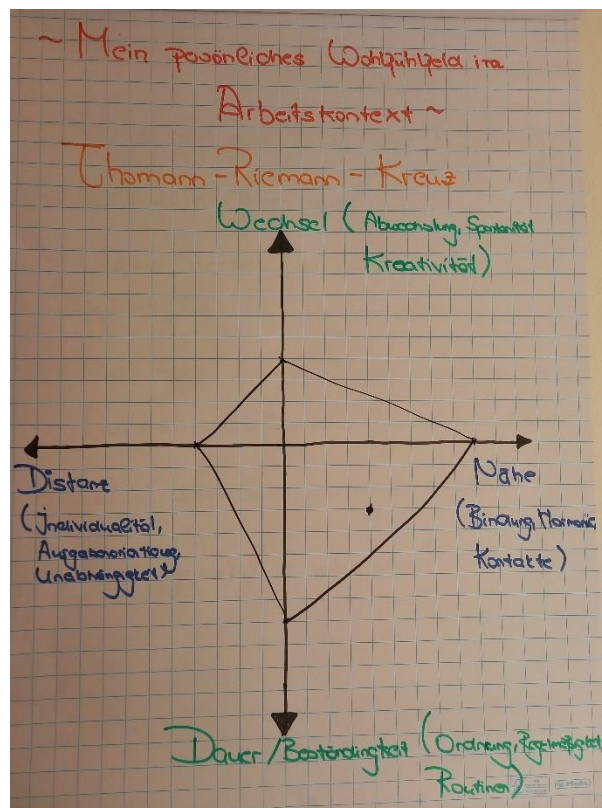 ~ Mein persönliches Wohlfühlfeld im
Arbeitskontext ~
Thomann-Riemann-Kreuz
Wechsel (Abwechslung, Spontanität
Kreativität)
Distanz
(Individualität,
Aufgabenorientierung,
Unabhängigkeit)
Nähe
(Bindung, Harmonie,
Kontakte)
Dauer/Beständigkeit (Ordnung, Regelmäßigkeit
Routinen)